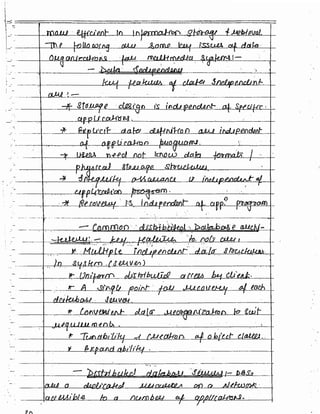 more efficient in information storage & retrieval.
The following are some key issues of data
Organizations for multimedia systems :-
- Data Independence
key features of data Independent
are :-
* Storage design is independent of specific
applications.
* Explicit data definition are independent
of application programs.
* Users need not know data formats /
physical storage structures.
* Integrity assurance is independent of
application program.
* Recovery is independent of app. program
- Common distributed Database archi-
tecture :- key features to note are,
* Multiple independent data structures
in system (server)
* Uniform distributed access by client.
* A single point for recovery of each
database server.
* Convenient data reorganization to suit
requirements.
* Tunability & creation of object classes.
* Expandability.
- Distributed database servers :- DBSs
are a dedicated resources on a network
accessible to a number of applications.